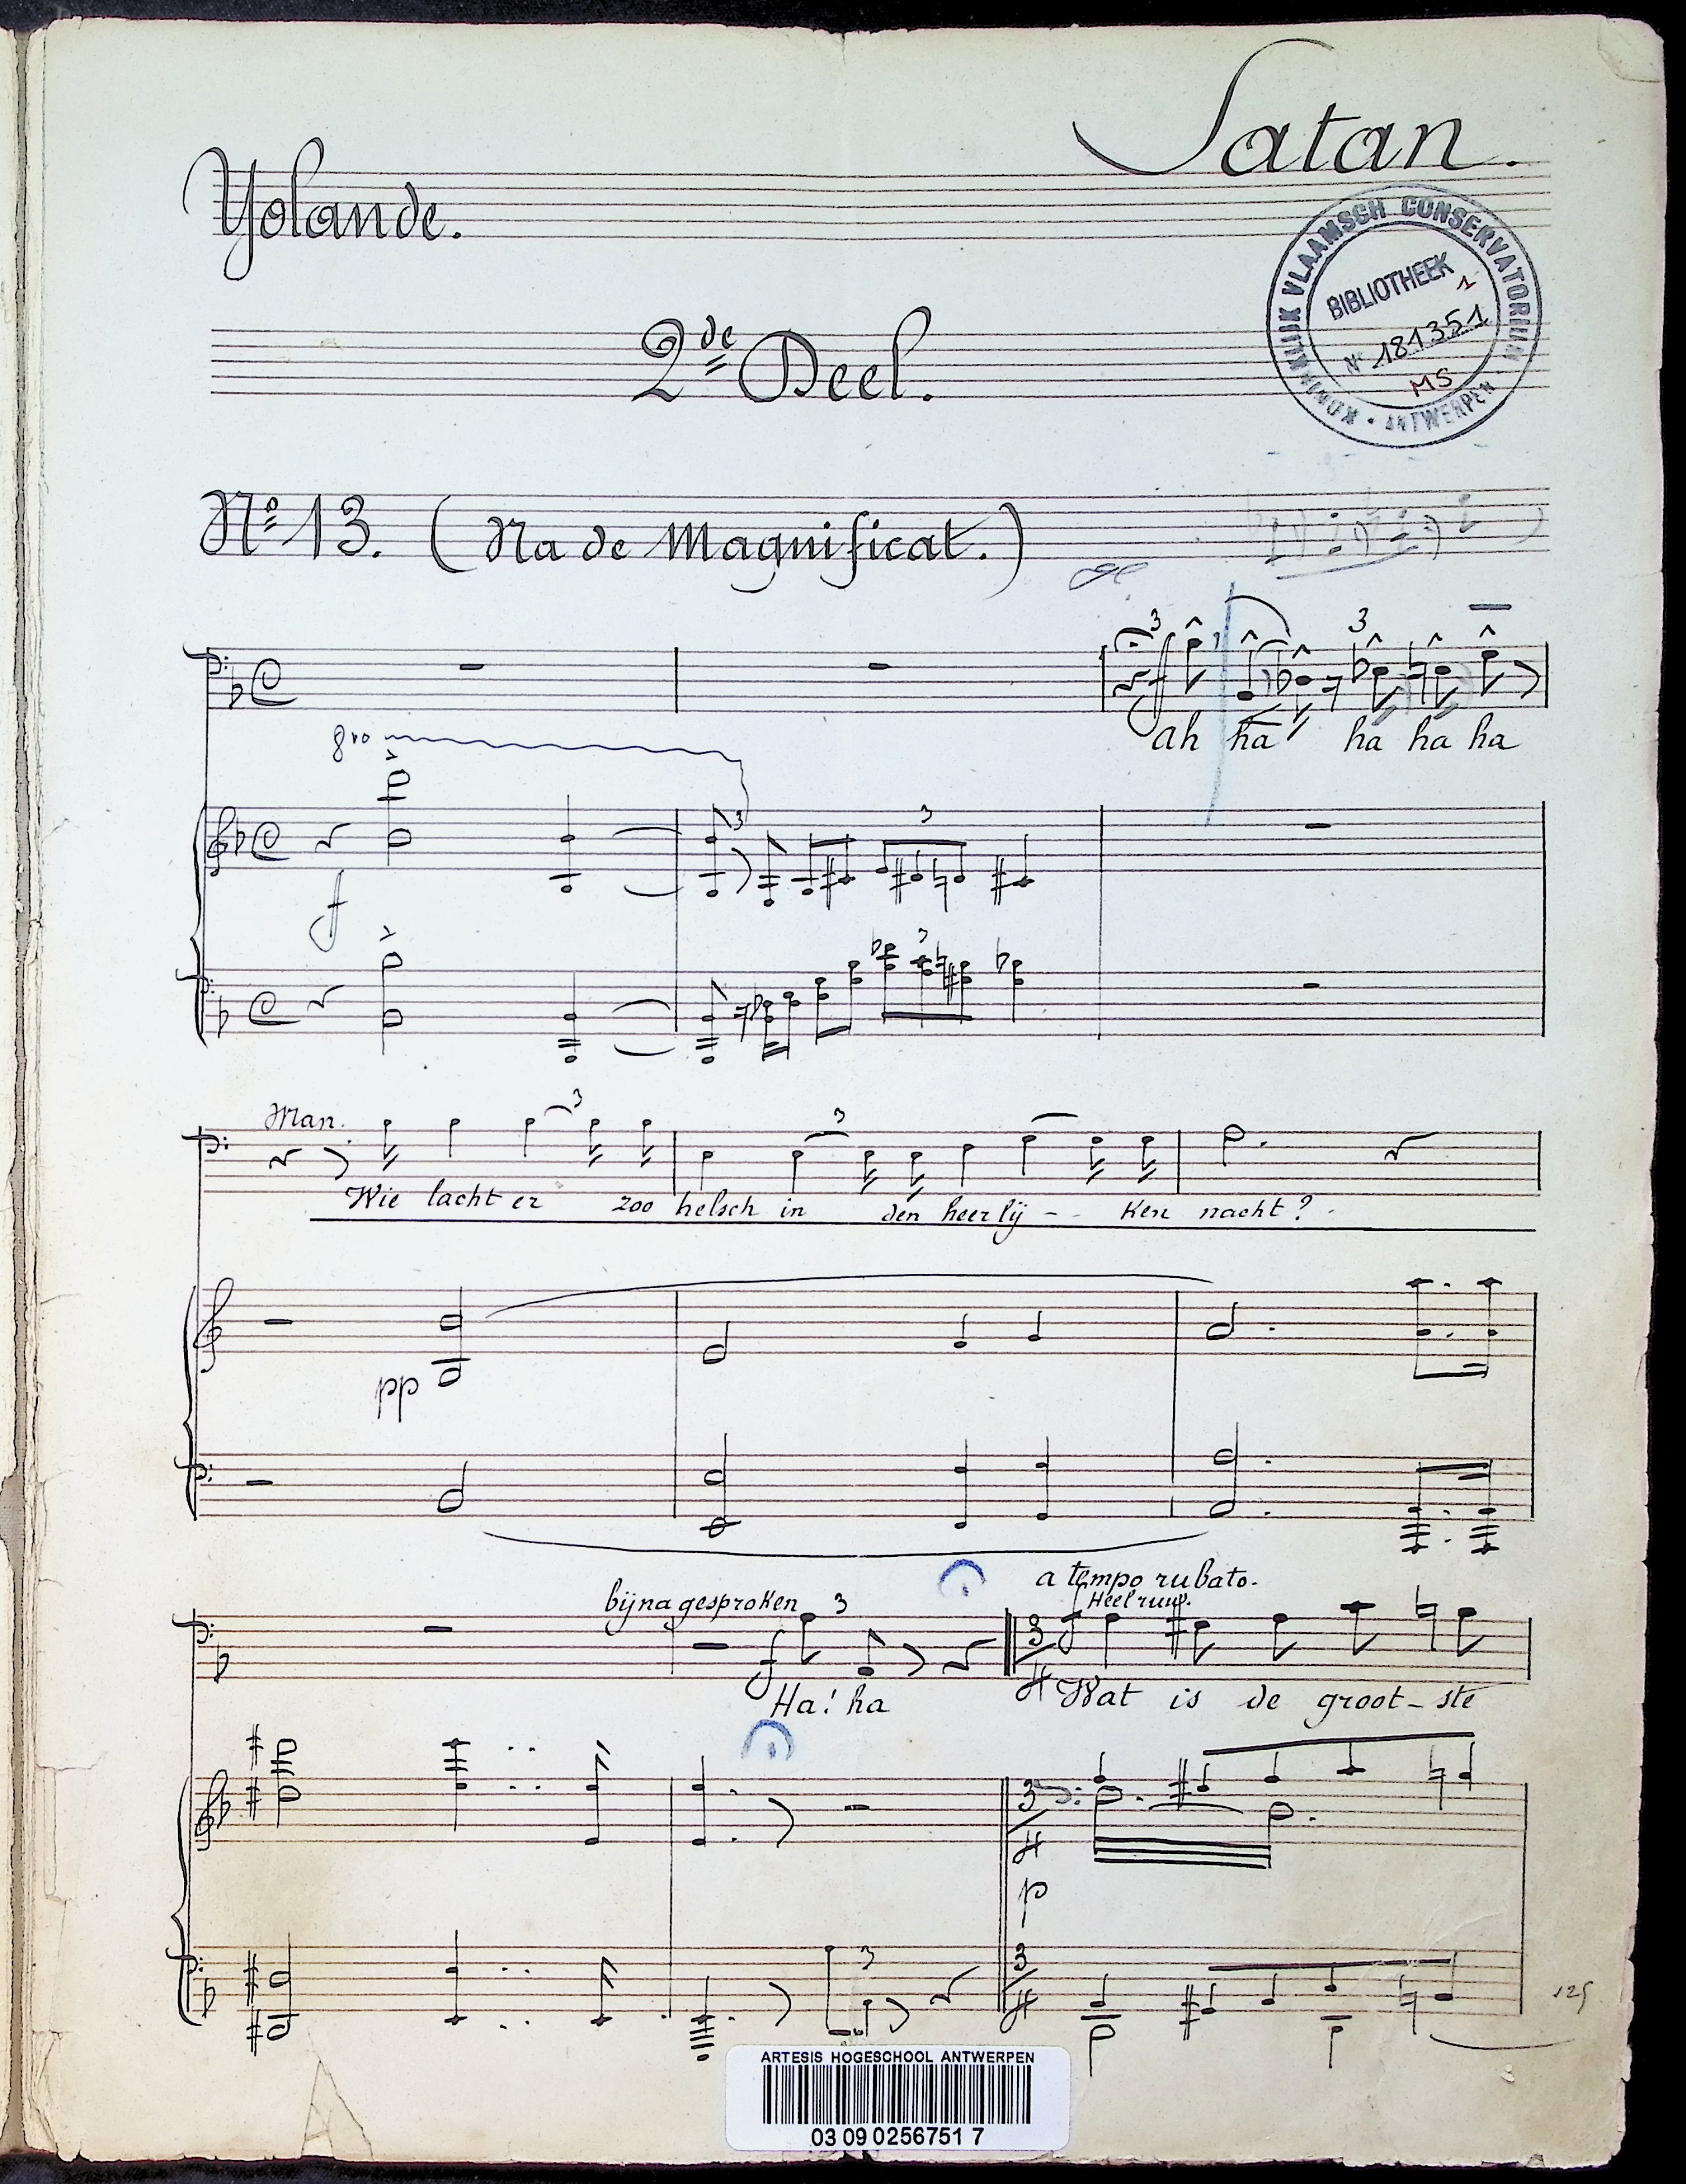 Satan.
Yolande.
KONINKLIJK VLAAMSCH CONSERVATORIUM • ANTWERPEN
BIBLIOTHEEK 1
Nr 181351
MS
2de Deel.
No 13. (Na de Magnificat.)
3 3
ah ha ha ha ha
8va
3 3
f
3
Man. 3 3
Wie lacht er zoo helsch in den heerlij - - ken nacht?
pp
a tempo rubato.
bijna gesproken 3 Heel ruw.
f 3 4 f
Ha! ha Wat is de groot - ste
3 4
p
3 3 4
125
ARTESIS HOGESCHOOL ANTWERPEN
03 09 0256751 7